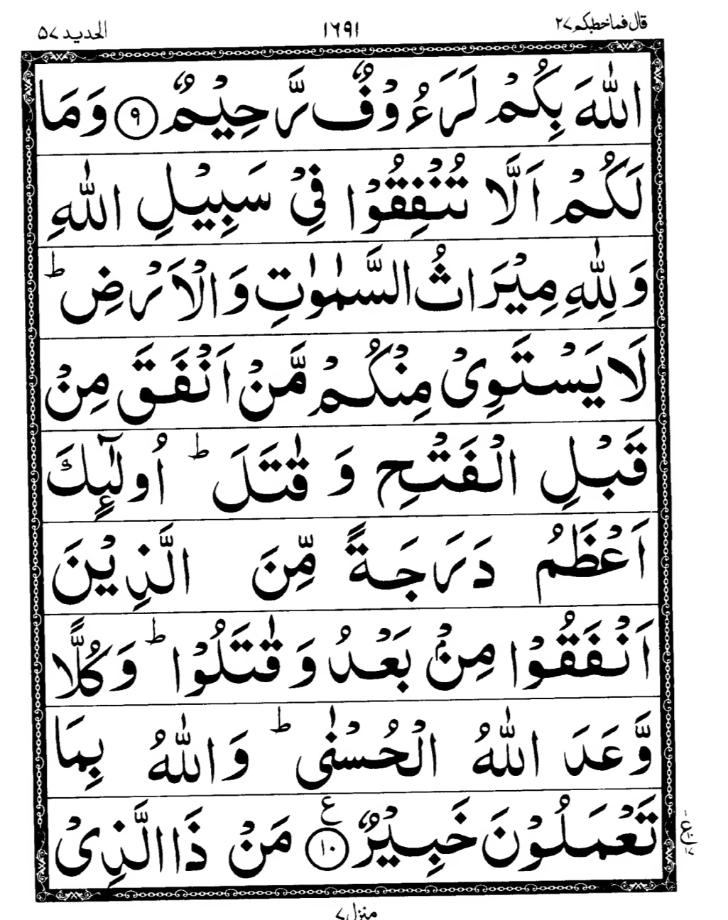 قال فماخطبكم ٢٧ ١٦٩١ الحديد ٥٧
اللهَ بِكُمْ لَرَءُوْفٌ رَّحِيْمٌ ۝٩ وَمَا
لَكُمْ اَلَّا تُنْفِقُوْا فِيْ سَبِيْلِ اللهِ
وَلِلّٰهِ مِيْرَاثُ السَّمٰوٰتِ وَالْاَرْضِ ؕ
لَا يَسْتَوِيْ مِنْكُمْ مَّنْ اَنْفَقَ مِنْ
قَبْلِ الْفَتْحِ وَ قٰتَلَ ؕ اُولٰٓئِكَ
اَعْظَمُ دَرَجَةً مِّنَ الَّذِيْنَ
اَنْفَقُوْا مِنْۢ بَعْدُ وَ قٰتَلُوْا ؕ وَكُلًّا
وَّعَدَ اللهُ الْحُسْنٰى ؕ وَاللهُ بِمَا
تَعْمَلُوْنَ خَبِيْرٌ ۝١٠ ع مَنْ ذَا الَّذِيْ
منزل ٧